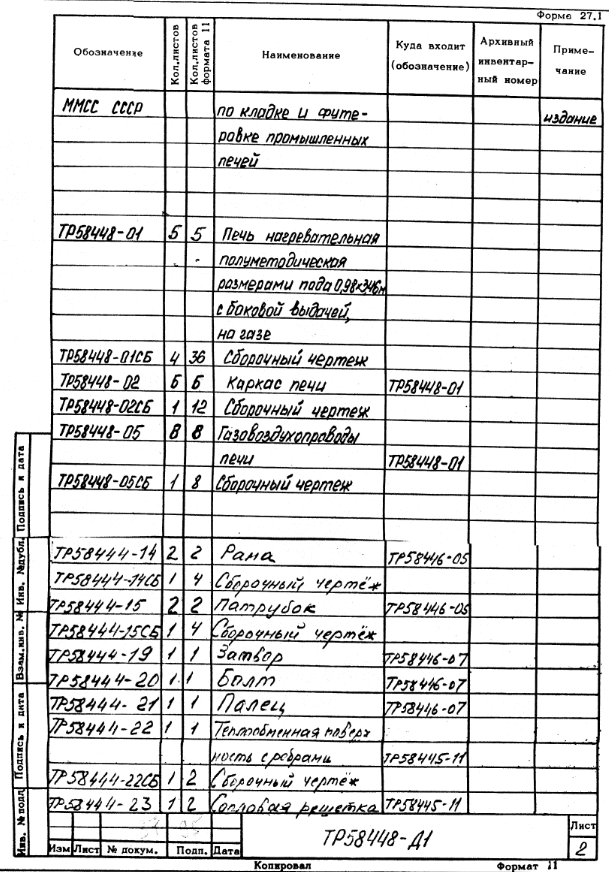 Форма 27.1
Обозначение Кол.листов Кол.листов формата 11 Наименование Куда входит (обозначение) Архивный инвентар- ный номер Приме- чание
ММСС СССР по кладке и футе- издание
ровке промышленных
печей
ТР58448-01 5 5 Печь нагревательная
полуметодическая
размерами пода 0,98×3,46м
с боковой выдачей,
на газе
ТР58448-01СБ 4 36 Сборочный чертеж
ТР58448-02 6 6 Каркас печи ТР58448-01
ТР58448-02СБ 1 12 Сборочный чертеж
ТР58448-05 8 8 Газовоздухопроводы
печи ТР58448-01
ТР58448-05СБ 1 8 Сборочный чертеж
ТР58444-14 2 2 Рама ТР58446-05
ТР58444-14СБ 1 4 Сборочный чертёж
ТР58444-15 2 2 Патрубок ТР58446-05
ТР58444-15СБ 1 4 Сборочный чертёж
ТР58444-19 1 1 Затвор ТР58446-07
ТР58444-20 1 1 Болт ТР58446-07
ТР58444-21 1 1 Палец ТР58446-07
ТР58444-22 1 1 Теплобменная поверх
ность с ребрами ТР58445-11
ТР58444-22СБ 1 2 Сборочный чертёж
ТР58444-23 1 2 Сопловая решетка ТР58445-11
Инв. № подл. Подпись и дата Взам.инв. № Инв. №дубл. Подпись и дата
ТР58448-Д1 Лист
2
Изм Лист № докум. Подп. Дата
Копировал Формат 11